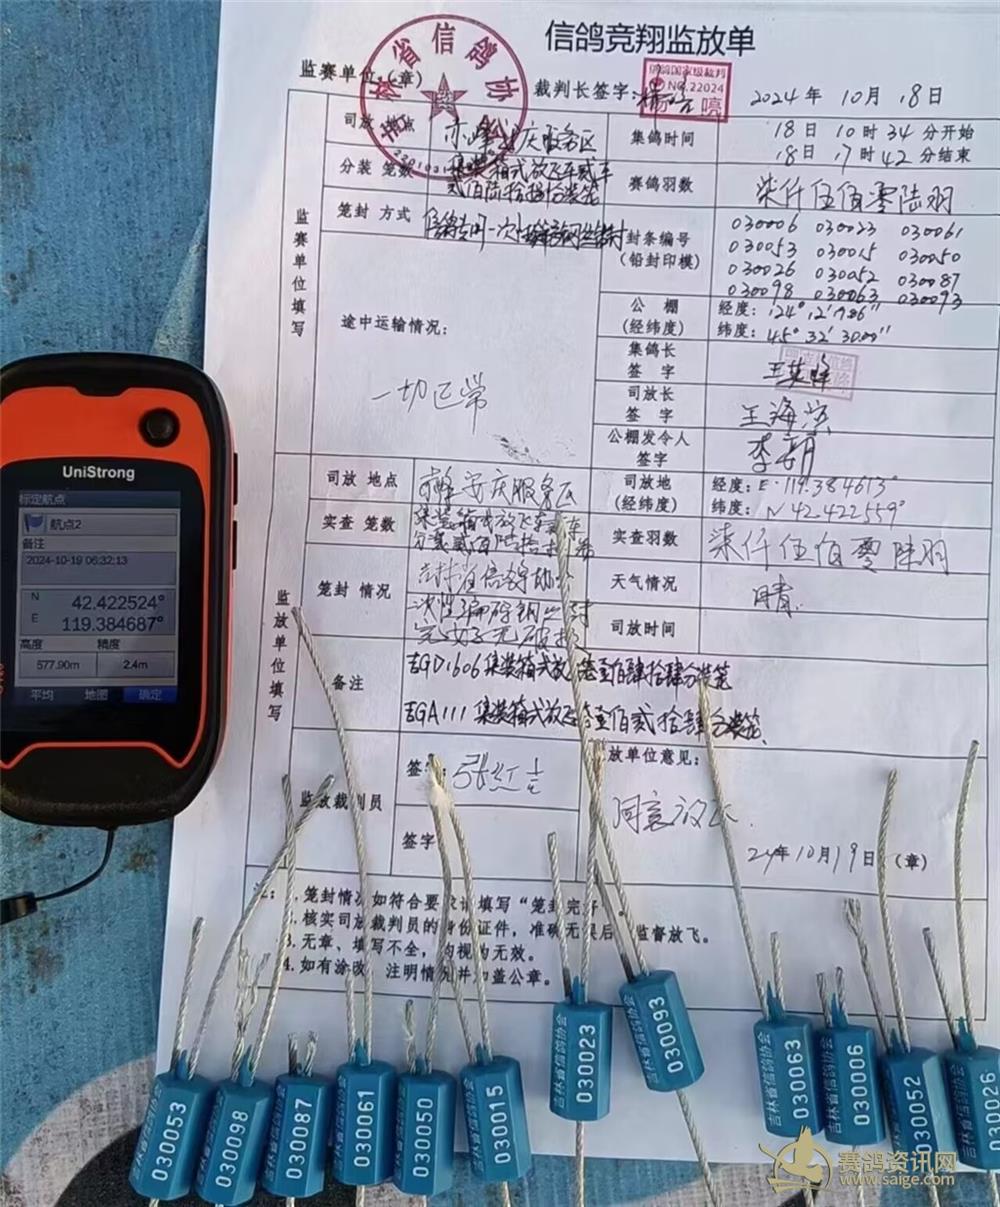 信鸽竞翔监放单
监赛单位:(章)
吉林省信鸽协会
裁判长签字:
信鸽国家级裁判
NO.22024
2024年 10月 18日
司放地点
赤峰安庆服务区
集鸽时间
18日 10时34分开始
18日 17时42分结束
分装 笼数
集装箱式放飞车贰车
贰佰陆拾捌分装笼
赛鸽羽数
柒仟伍佰零陆羽
监赛单位填写
笼封 方式
封条编号
(铅封印模)
030006 030023 030061
030053 030015 030050
030026 030052 030087
030098 030063 030093
途中运输情况:
一切正常
公 棚
(经纬度)
经度: 124° 12′7.86″
纬度: 45° 32′ 30.00″
集鸽长
签 字
司放长
签 字
王海
公棚发令人
签字
李
监放单位填写
司放 地点
赤峰安庆服务区
司放地
(经纬度)
经度: E·119.384613°
纬度: N 42.422559°
实查 笼数
集装箱式放飞车贰车
实查羽数
柒仟伍佰零陆羽
笼封 情况
吉林省信鸽协会
完好无破损
天气情况
晴
司放时间
备注
吉GD1606集装箱式放飞 壹佰肆拾肆分装笼
吉GA111 集装箱式放飞 壹佰贰拾肆分装笼
监放裁判员
签字
张红
签字
放单位意见:
同意放飞.
24年10月19日 (章)
注: 1.笼封情况如符合要求请填写“笼封完好
2.核实司放裁判员的身份证件，准确无误后 监督放飞。
3.无章、填写不全，均视为无效。
4.如有涂改 注明情况并加盖公章。
UniStrong
标定航点
航点2
备注
2024-10-19 06:32:13
N 42.422524°
E 119.384687°
高度 精度
577.90m 2.4m
平均 地图 确定
030053
030098
030087
030061
030050
吉林省信鸽协会 030015
吉林省信鸽协会 030023
吉林省信鸽协会 030093
吉林省信鸽协会 030063
吉林省信鸽协会 030006
030052
030026
赛鸽资讯网
www.saige.com